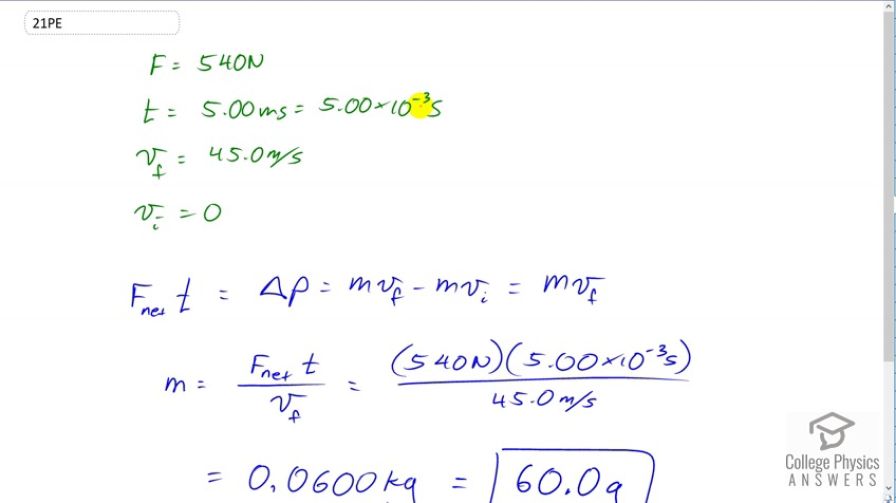 21PE
F = 540N
t = 5.00ms = 5.00×10⁻³s
v_f = 45.0m/s
v_i = 0
F_net t = Δp = mv_f - mv_i = mv_f
m = F_net t / v_f = (540N)(5.00×10⁻³s) / 45.0m/s
= 0.0600kg = 60.0g
College Physics
ANSWERS